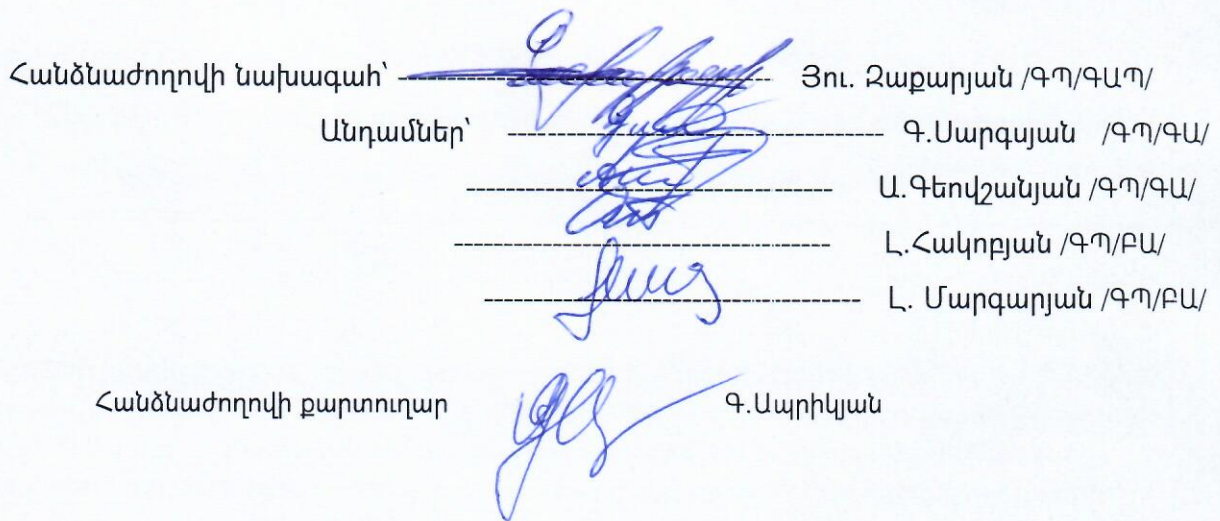 Հանձնաժողովի նախագահ՝ ------------------------------------- Յու. Զաքարյան /ԳՊ/ԳԱՊ/
Անդամներ՝ ------------------------------------- Գ.Սարգսյան /ԳՊ/ԳԱ/
------------------------------------- Ա.Գեովշանյան /ԳՊ/ԳԱ/
------------------------------------- Լ.Հակոբյան /ԳՊ/ԲԱ/
------------------------------------- Լ. Մարգարյան /ԳՊ/ԲԱ/
Հանձնաժողովի քարտուղար Գ.Ապրիկյան